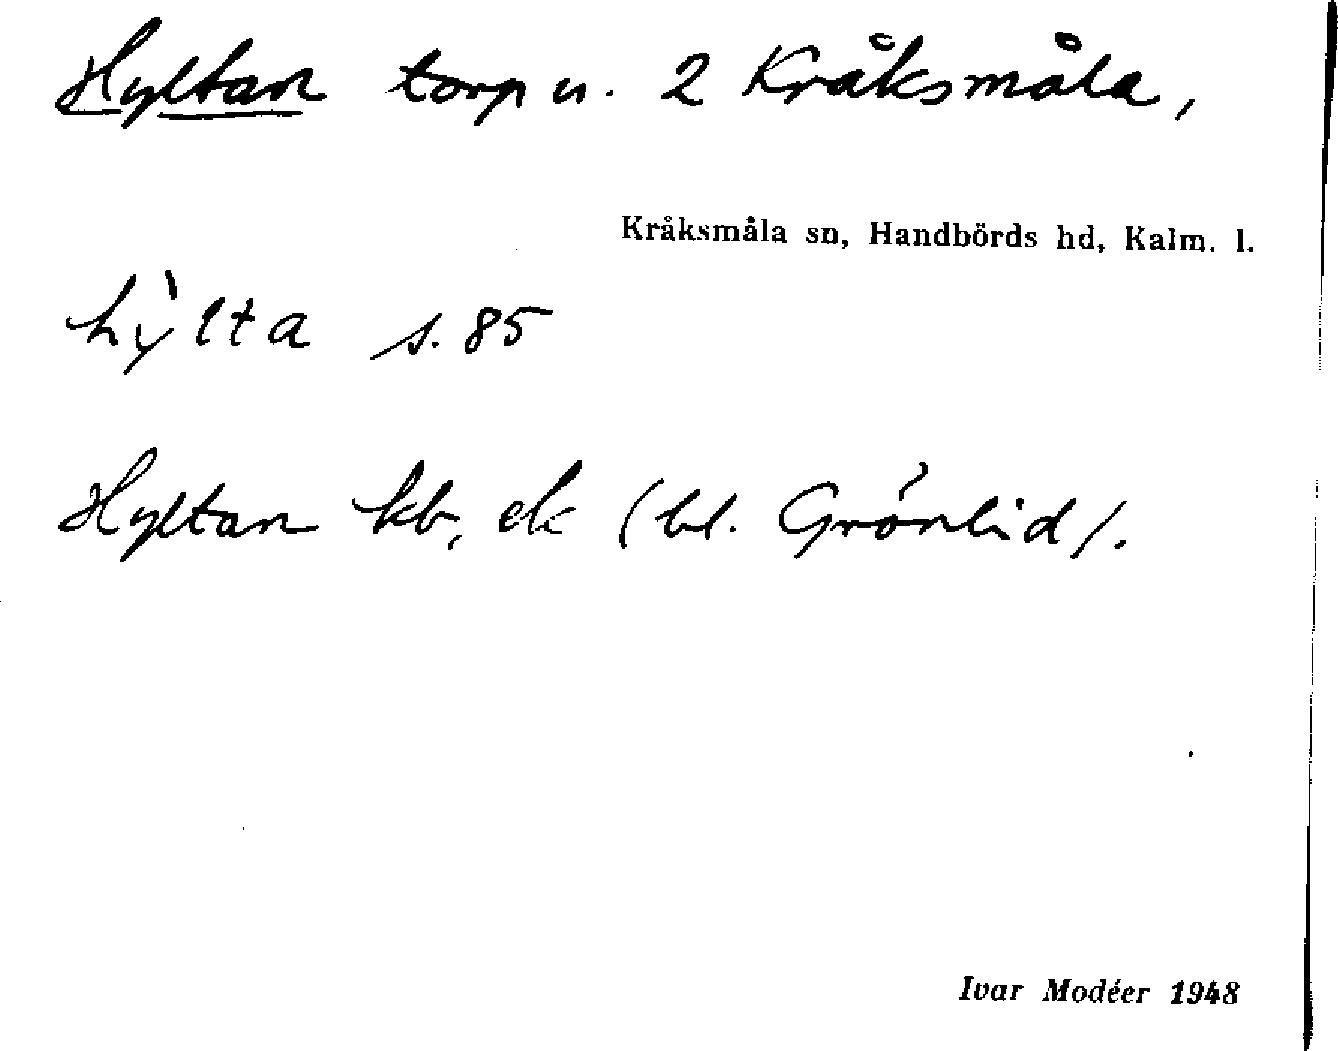 Hyltan torp u. 2 Kråksmåla,
Kråksmåla sn, Handbörds hd, Kalm. l.
hỳlta s. 85
Hyltan kb, ek (bl. Grönlid).
Ivar Modéer 1948